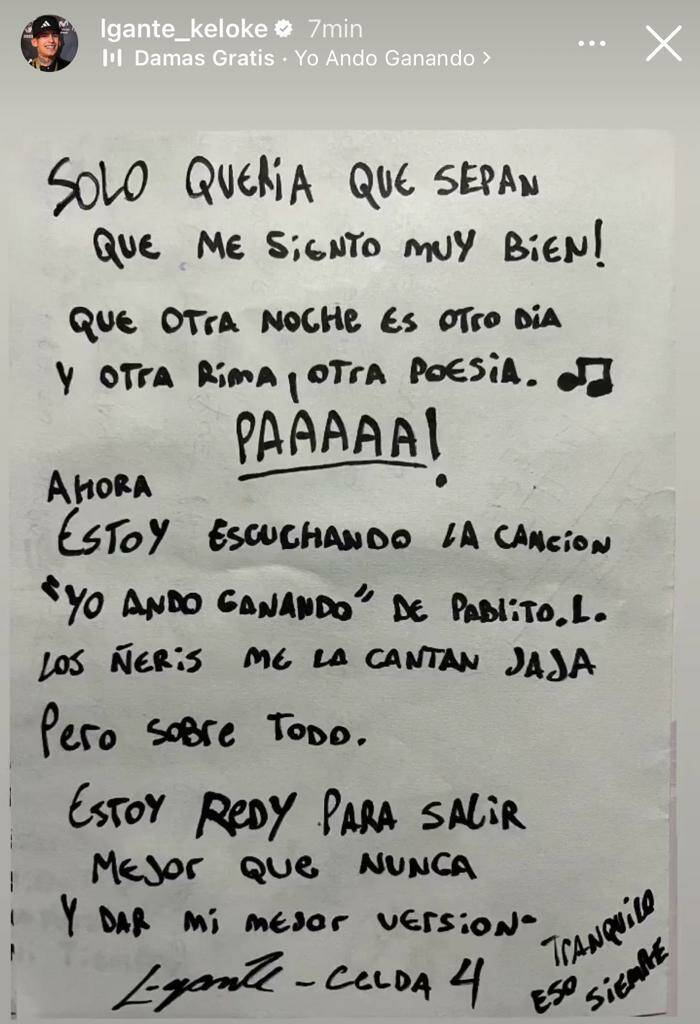 lgante_keloke 7min
Damas Gratis · Yo Ando Ganando >
SOLO QUERiA QUE SEPAN
QUE ME SiENTO MUY BiEN!
QUE OTrA NOCHE Es OTrO DiA
Y OTrA RimA, OTrA POESiA.
PAAAAA!
AHORA
ESTOY ESCUCHANDO LA CANCiON
"YO ANDO GANANDO" DE PABLiTO.L.
LOS ÑERiS ME LA CANTAN JAJA
Pero SOBre TODO.
ESTOY ReDY PARA SALiR
MEJor QUE NUNCA
Y DAR Mi mEJor VERSiON-
L-gante - CELDA 4
TrANQUiLO
ESO SiEMPRE